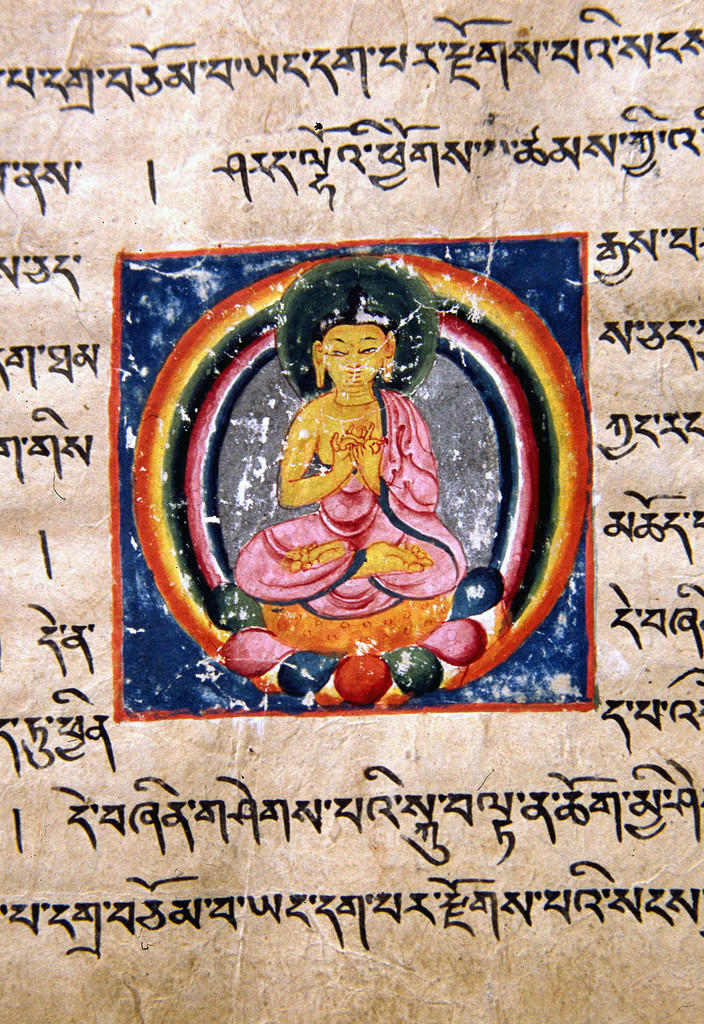 པ་དགྲ་བཅོམ་བ་ཡང་དག་པར་རྫོགས་པའི་སངས
ནས་ ། ལྷོའི་ཕྱོགས་ ཚམས་ཀྱི་
ས་ཅད་ རྒྱས་པ
དག་ཐམ ས་ཅད་
ག་གིས ཀྱང་རང
། མཆོད་
དེ་ན་ དེ་བཞི
ད་ཏུ་ཕྱིན ད་པའི
། དེ་བཞིན་གཤེགས་པའི་སྐུ་བལྟ་ན་ཆོག་མྱི་ཤེ
པ་དགྲ་བཅོམ་བ་ཡང་དག་པར་རྫོགས་པའི་སངས་